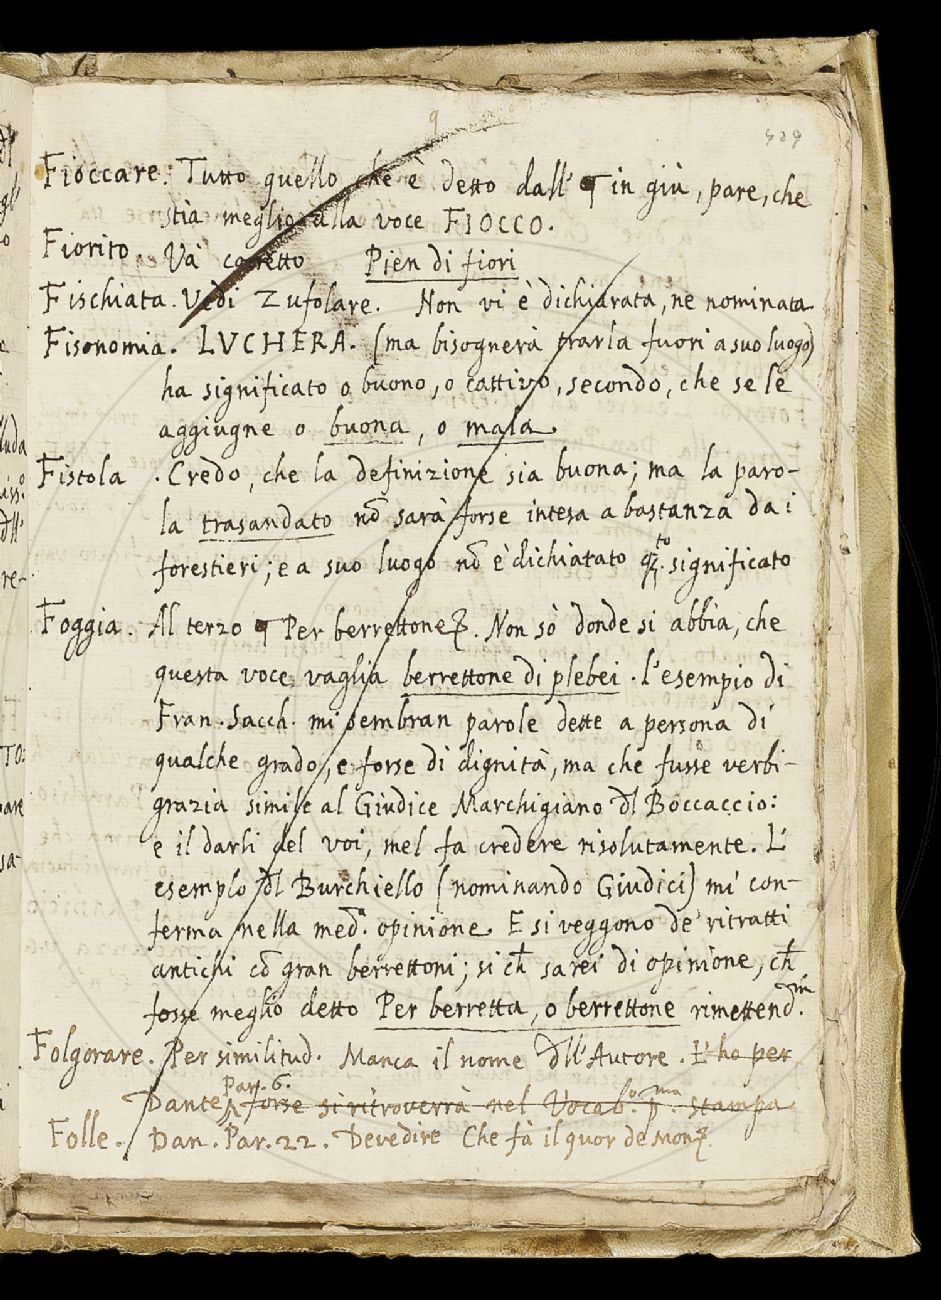 9
429
Fioccare. Tutto quello che è detto dall' ¶ in giù, pare, che
stia meglio alla voce FIOCCO.
Fiorito. Và corretto Pien di fiori
Fischiata. Vedi Zufolare. Non vi è dichiarata, ne nominata
Fisonomia. LVCHERA. (ma bisognerà trarla fuori a suo luogo)
ha significato o buono, o cattivo, secondo, che se le
aggiugne o buona, o mala.
Fistola. Credo, che la definizione sia buona; ma la paro-
la trasandato nõ sarà forse intesa abastanza dai
forestieri; e a suo luogo nõ è dichiatato q.to significato
Foggia. Al terzo ¶ Per berrettone. Non sò donde si abbia, che
questa voce vaglia berrettone di plebei. l'esempio di
Fran. Sacch. mi sembran parole dette a persona di
qualche grado, e forse di dignità, ma che fusse verbi-
grazia simile al Giudice Marchigiano dl Boccaccio:
e il darli del voi, mel fa credere risolutamente. L'
esemplo dl Burchiello (nominando Giudici) mi con-
ferma nella med.a opinione. E si veggono de' ritratti
antichi cõ gran berrettoni; si ch̄ sarei di opinione, ch̄
fosse meglio detto Per berretta, o berrettone rimettend.
Folgorare. Per similitud. Manca il nome dll'Autore. E' ho per
Dante Par. 6. forse si ritroverrà nel Vocab.o p.ma stampa
Folle. Dan. Par. 22. Devedire Che fà il quor de Mon